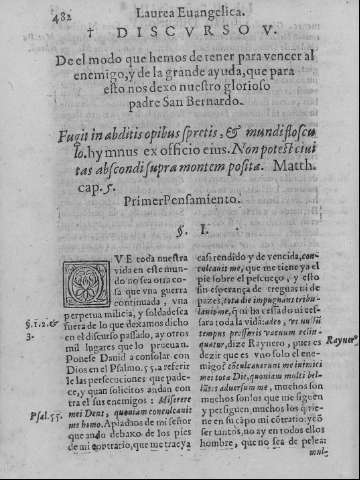 482
Laurea Euangelica.
† DISCVRSO V.
De el modo que hemos de tener para vencer al
enemigo, y de la grande ayuda, que para
esto nos dexo nuestro glorioso
padre San Bernardo.
Fugit in abditis opibus spretis, & mundi floscu
lo. hymnus ex officio eius. Non potest ciui
tas abscondi supra montem posita. Matth.
cap. 5.
Primer Pensamiento.
§. I.
QVE toda nuestra
vida en este mun-
do no sea otra co-
sa que vna guerra
continuada, vna
perpetua milicia, y soldadesca
§. 1. 2. &
3.
fuera de lo que dexamos dicho
en el discurso passado, ay otros
mil lugares que lo prueuan.
Ponese Dauid a consolar con
Dios en el Psalmo. 55. a referir
le las persecuciones que pade-
ce, y quan solicitos andan con
tra el sus enemigos: Miserere
Psal. 55.
mei Deus, quoniam conculcauit
me homo. Apiadaos de mi señor
que ando debaxo de los pies
de mi contrario, que me trae ya
casi rendido y de vencida, con-
culcauit me, que me tiene ya el
pie sobre el pescueço, y esto
sin esperança de treguas ni de
pazes, tota die impugnans tribu-
lauit me, q̃ ni ha cessado ni ces-
sara toda la vida: adeo,
tempus presseris vacuum relin-
quatur, dize Raynero, pues es
Raynero.
dezir que es vno solo el enemi-
go? cõculcauerunt me inimici
mei tota Die, quoniam multi bel-
lãtes aduersum me, muchos son
muchos son los que me siguen
y persiguen, muchos los q̃ tie-
ne en su cãpo mi cõtrario: y cõ
ser tantos, no ay en todos ellos
hombre, que no sea de pelea:
mul-